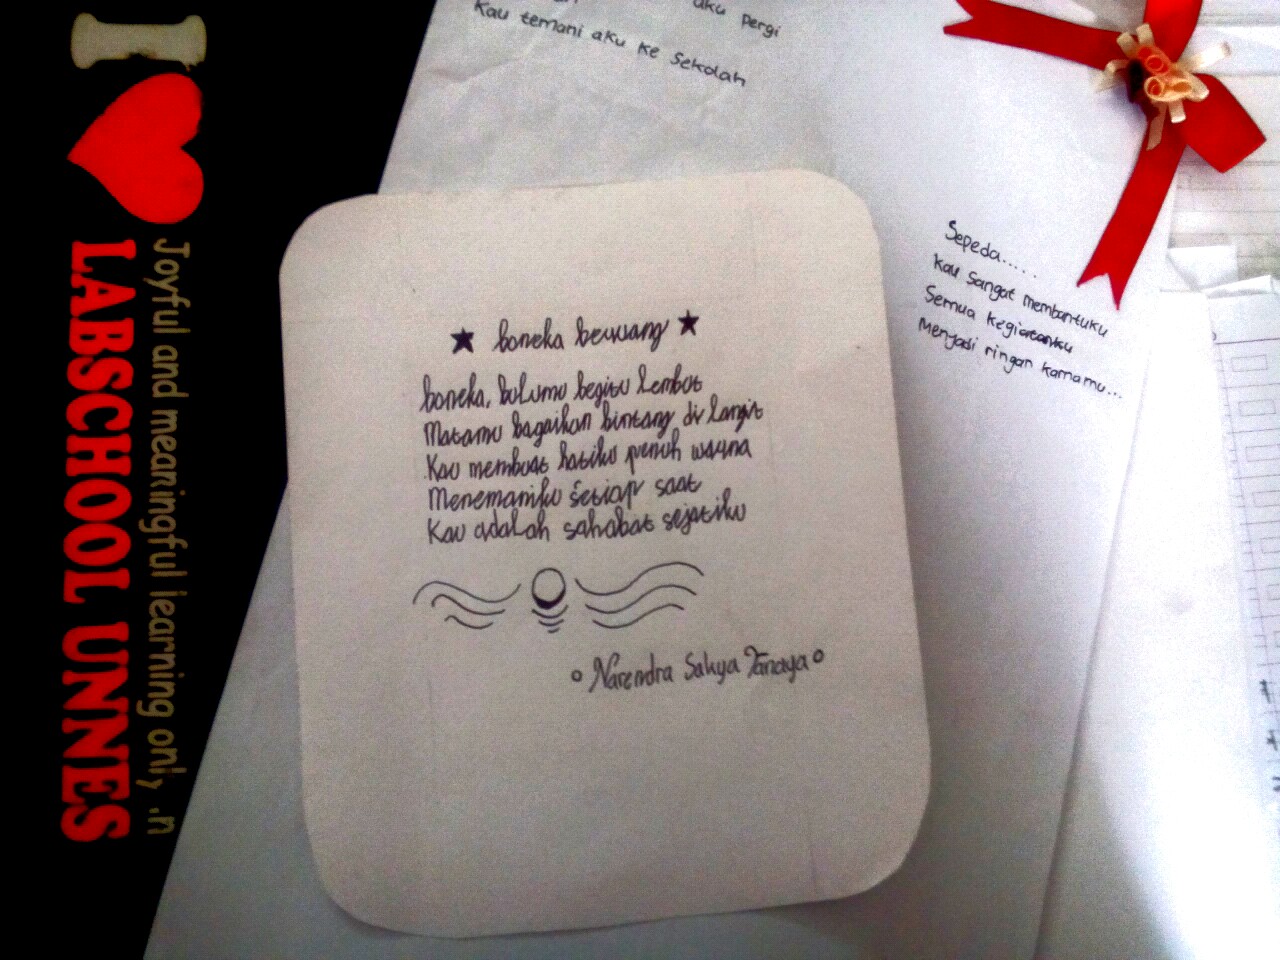 I
LABSCHOOL UNNES
Joyful and meaningful learning only .n
aku pergi
Kau temani aku ke Sekolah
boneka beruang
boneka, bulumu begitu lembut
Matamu bagaikan bintang di langit
Kau membuat hatiku penuh warna
Menemaniku setiap saat
Kau adalah sahabat sejatiku
Narendra Sakya Tanaya
Sepeda.....
Kau Sangat membantuku
Semua Kegiatanku
Menjadi ringan karnamu...